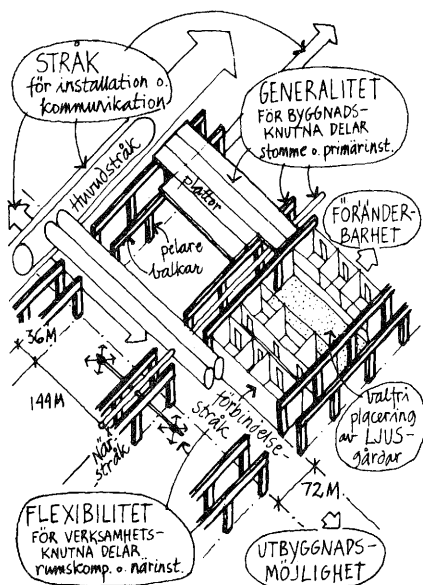 STRÅK
för installation o.
kommunikation
GENERALITET
FÖR BYGGNADS-
KNUTNA DELAR
stomme o. primärinst.
Huvudstråk
plattor
pelare
balkar
FÖRÄNDER-
BARHET
36M
144M
När-
stråk
förbindelse-
stråk
valfri
placering
av LJUS-
gårdar
72M
FLEXIBILITET
FÖR VERKSAMHETS-
KNUTNA DELAR
rumskomp. o. närinst.
UTBYGGNADS-
MÖJLIGHET